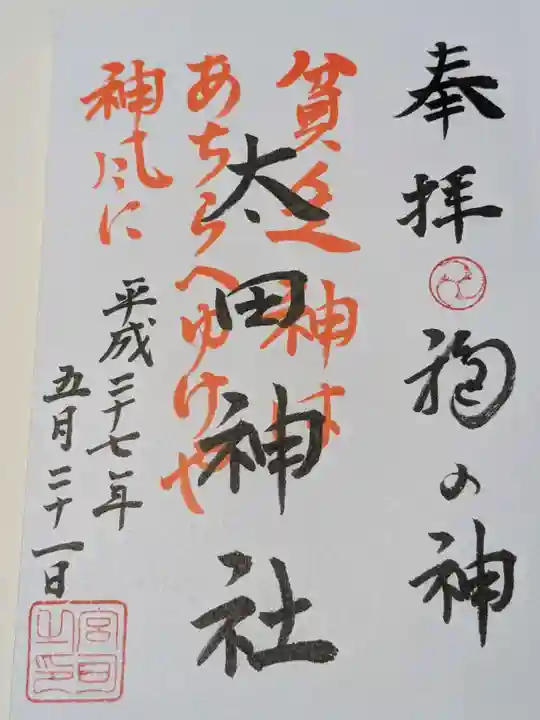 奉拝 狛の神
太田神社
貧乏神は
あちらへゆけや
神風に
平成二十七年
五月二十一日